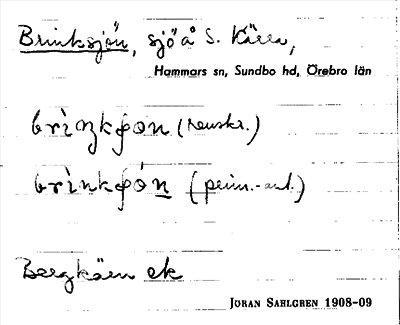 Brinksjön, sjö å S. Kärra,
Hammars sn, Sundbo hd, Örebro län
brìŋkʃon (renskr.)
brìnkʃón (prim.-ant.)
Bergkärn ek
JÖRAN SAHLGREN 1908-09